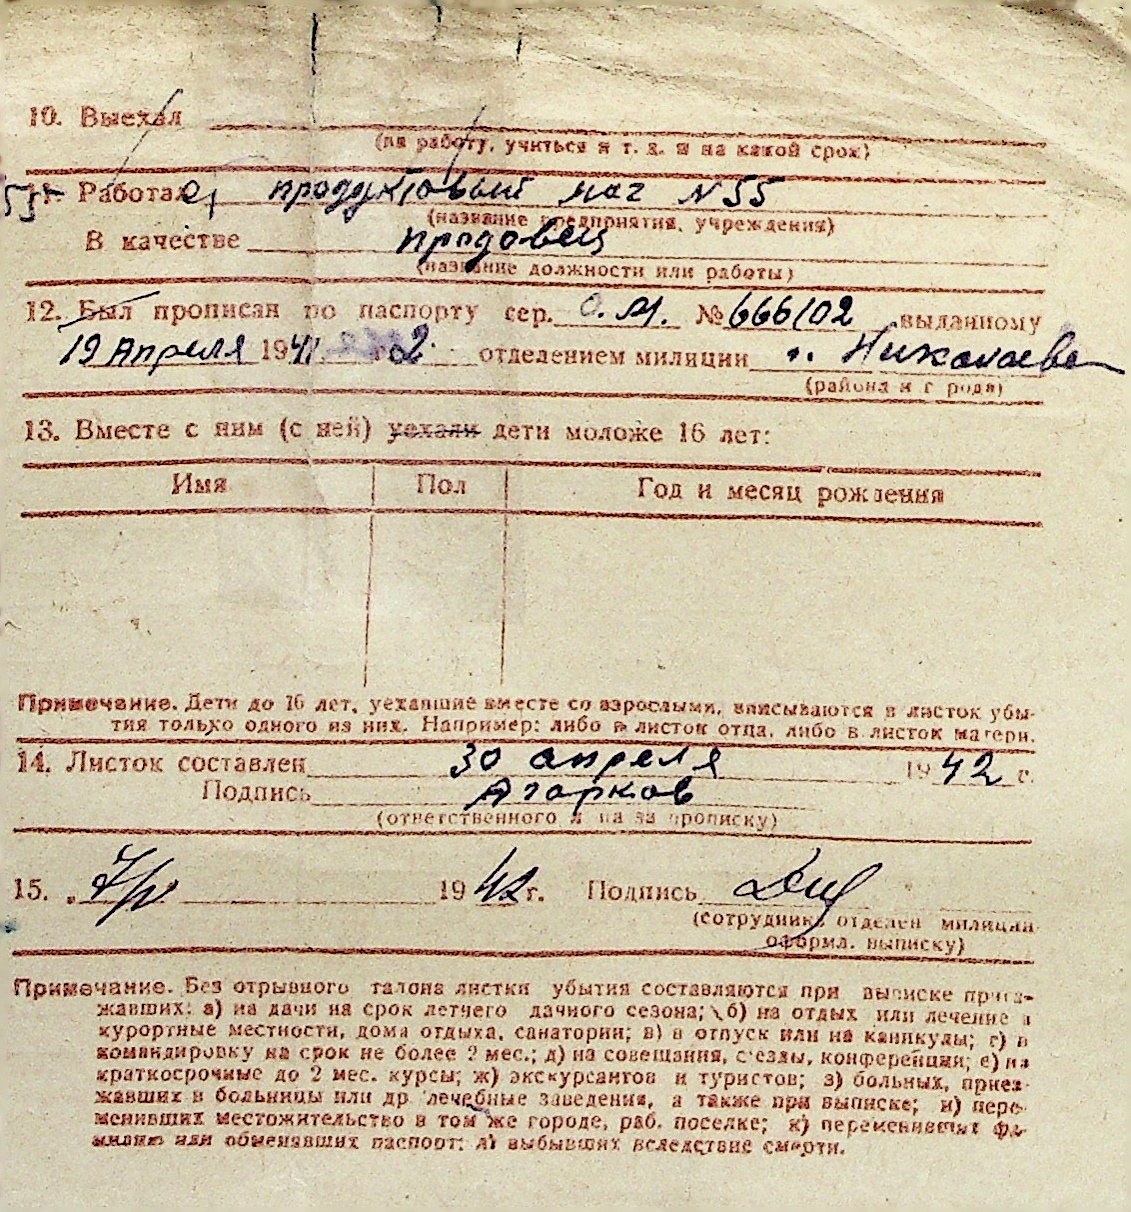 10. Выехал
(на работу, учиться и т. д. и на какой срок)
Работает продуктовый маг № 55
(название предприятия, учреждения)
В качестве продовец
(название должности или работы)
12. Был прописан по паспорту сер. О.М. № 666102 выданному
19 Апреля 1941 г 2 отделением милиции г. Николаева
(района и города)
13. Вместе с ним (с ней) уехали дети моложе 16 лет:
Имя Пол Год и месяц рождения
Примечание. Дети до 16 лет, уехавшие вместе со взрослыми, вписываются в листок убы-
тия только одного из них. Например: либо в листок отца, либо в листок матери.
14. Листок составлен 30 апреля 1942 г.
Подпись Агарков
(ответственного л на за прописку)
15. 1942 г. Подпись
(сотрудник отделен милиции
оформл. выписку)
Примечание. Без отрывного талона листки убытия составляются при выписке приез-
жавших: а) на дачи на срок летнего дачного сезона; б) на отдых или лечение в
курортные местности, дома отдыха, санатории; в) в отпуск или на каникулы; г) в
командировку на срок не более 2 мес.; д) на совещания, съезды, конференции; е) на
краткосрочные до 2 мес. курсы; ж) экскурсантов и туристов; з) больных, приез-
жавших в больницы или др лечебные заведения, а также при выписке; и) пере-
менивших местожительство в том же городе, раб. поселке; к) переменивших фа-
милию или обменявших паспорт; л) выбывших вследствие смерти.